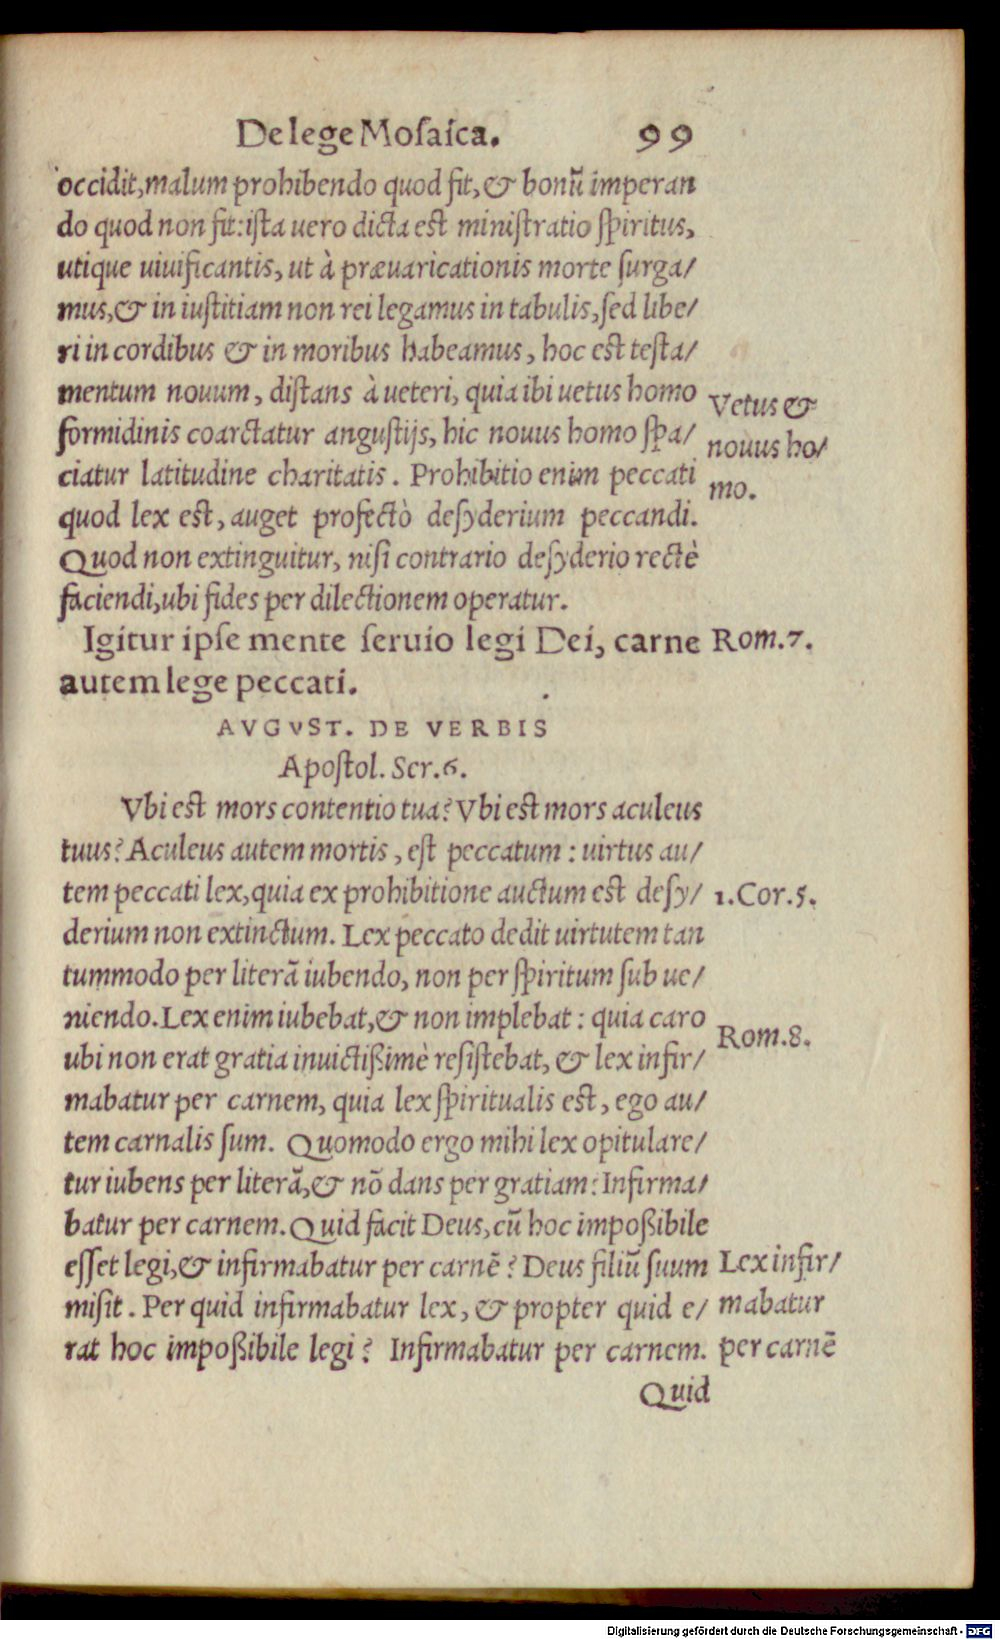 De lege Mosaica. 99
occidit, malum prohibendo quod fit, & bonū imperan
do quod non fit: ista vero dicta est ministratio spiritus,
utique uiuificantis, ut à præuaricationis morte surga/
mus, & in iustitiam non rei legamus in tabulis, sed libe/
ri in cordibus & in moribus habeamus, hoc est testa/
mentum nouum, distans à ueteri, quia ibi uetus homo
formidinis coarctatur angustijs, hic nouus homo spa/
ciatur latitudine charitatis. Prohibitio enim peccati
quod lex est, auget profectò desyderium peccandi.
Quod non extinguitur, nisi contrario desyderio rectè
faciendi, ubi fides per dilectionem operatur.
Vetus &
nouus ho/
mo.
Igitur ipse mente seruio legi Dei, carne
autem lege peccati.
Rom.7.
AVGVST. DE VERBIS
Apostol. Ser.6.
Vbi est mors contentio tua? Vbi est mors aculeus
tuus? Aculeus autem mortis, est peccatum: uirtus au/
tem peccati lex, quia ex prohibitione auctum est desy/
derium non extinctum. Lex peccato dedit uirtutem tan
tummodo per literā iubendo, non per spiritum sub ue/
niendo. Lex enim iubebat, & non implebat: quia caro
ubi non erat gratia inuictißimè resistebat, & lex infir/
mabatur per carnem, quia lex spiritualis est, ego au/
tem carnalis sum. Quomodo ergo mihi lex opitulare/
tur iubens per literā, & nō dans per gratiam: Infirma/
batur per carnem. Quid facit Deus, cū hoc impoßibile
esset legi, & infirmabatur per carnē? Deus filiū suum
misit. Per quid infirmabatur lex, & propter quid e/
rat hoc impoßibile legi? Infirmabatur per carnem.
1.Cor.5.
Rom.8.
Lex infir/
mabatur
per carnē
Quid
Digitalisierung gefördert durch die Deutsche Forschungsgemeinschaft - DFG